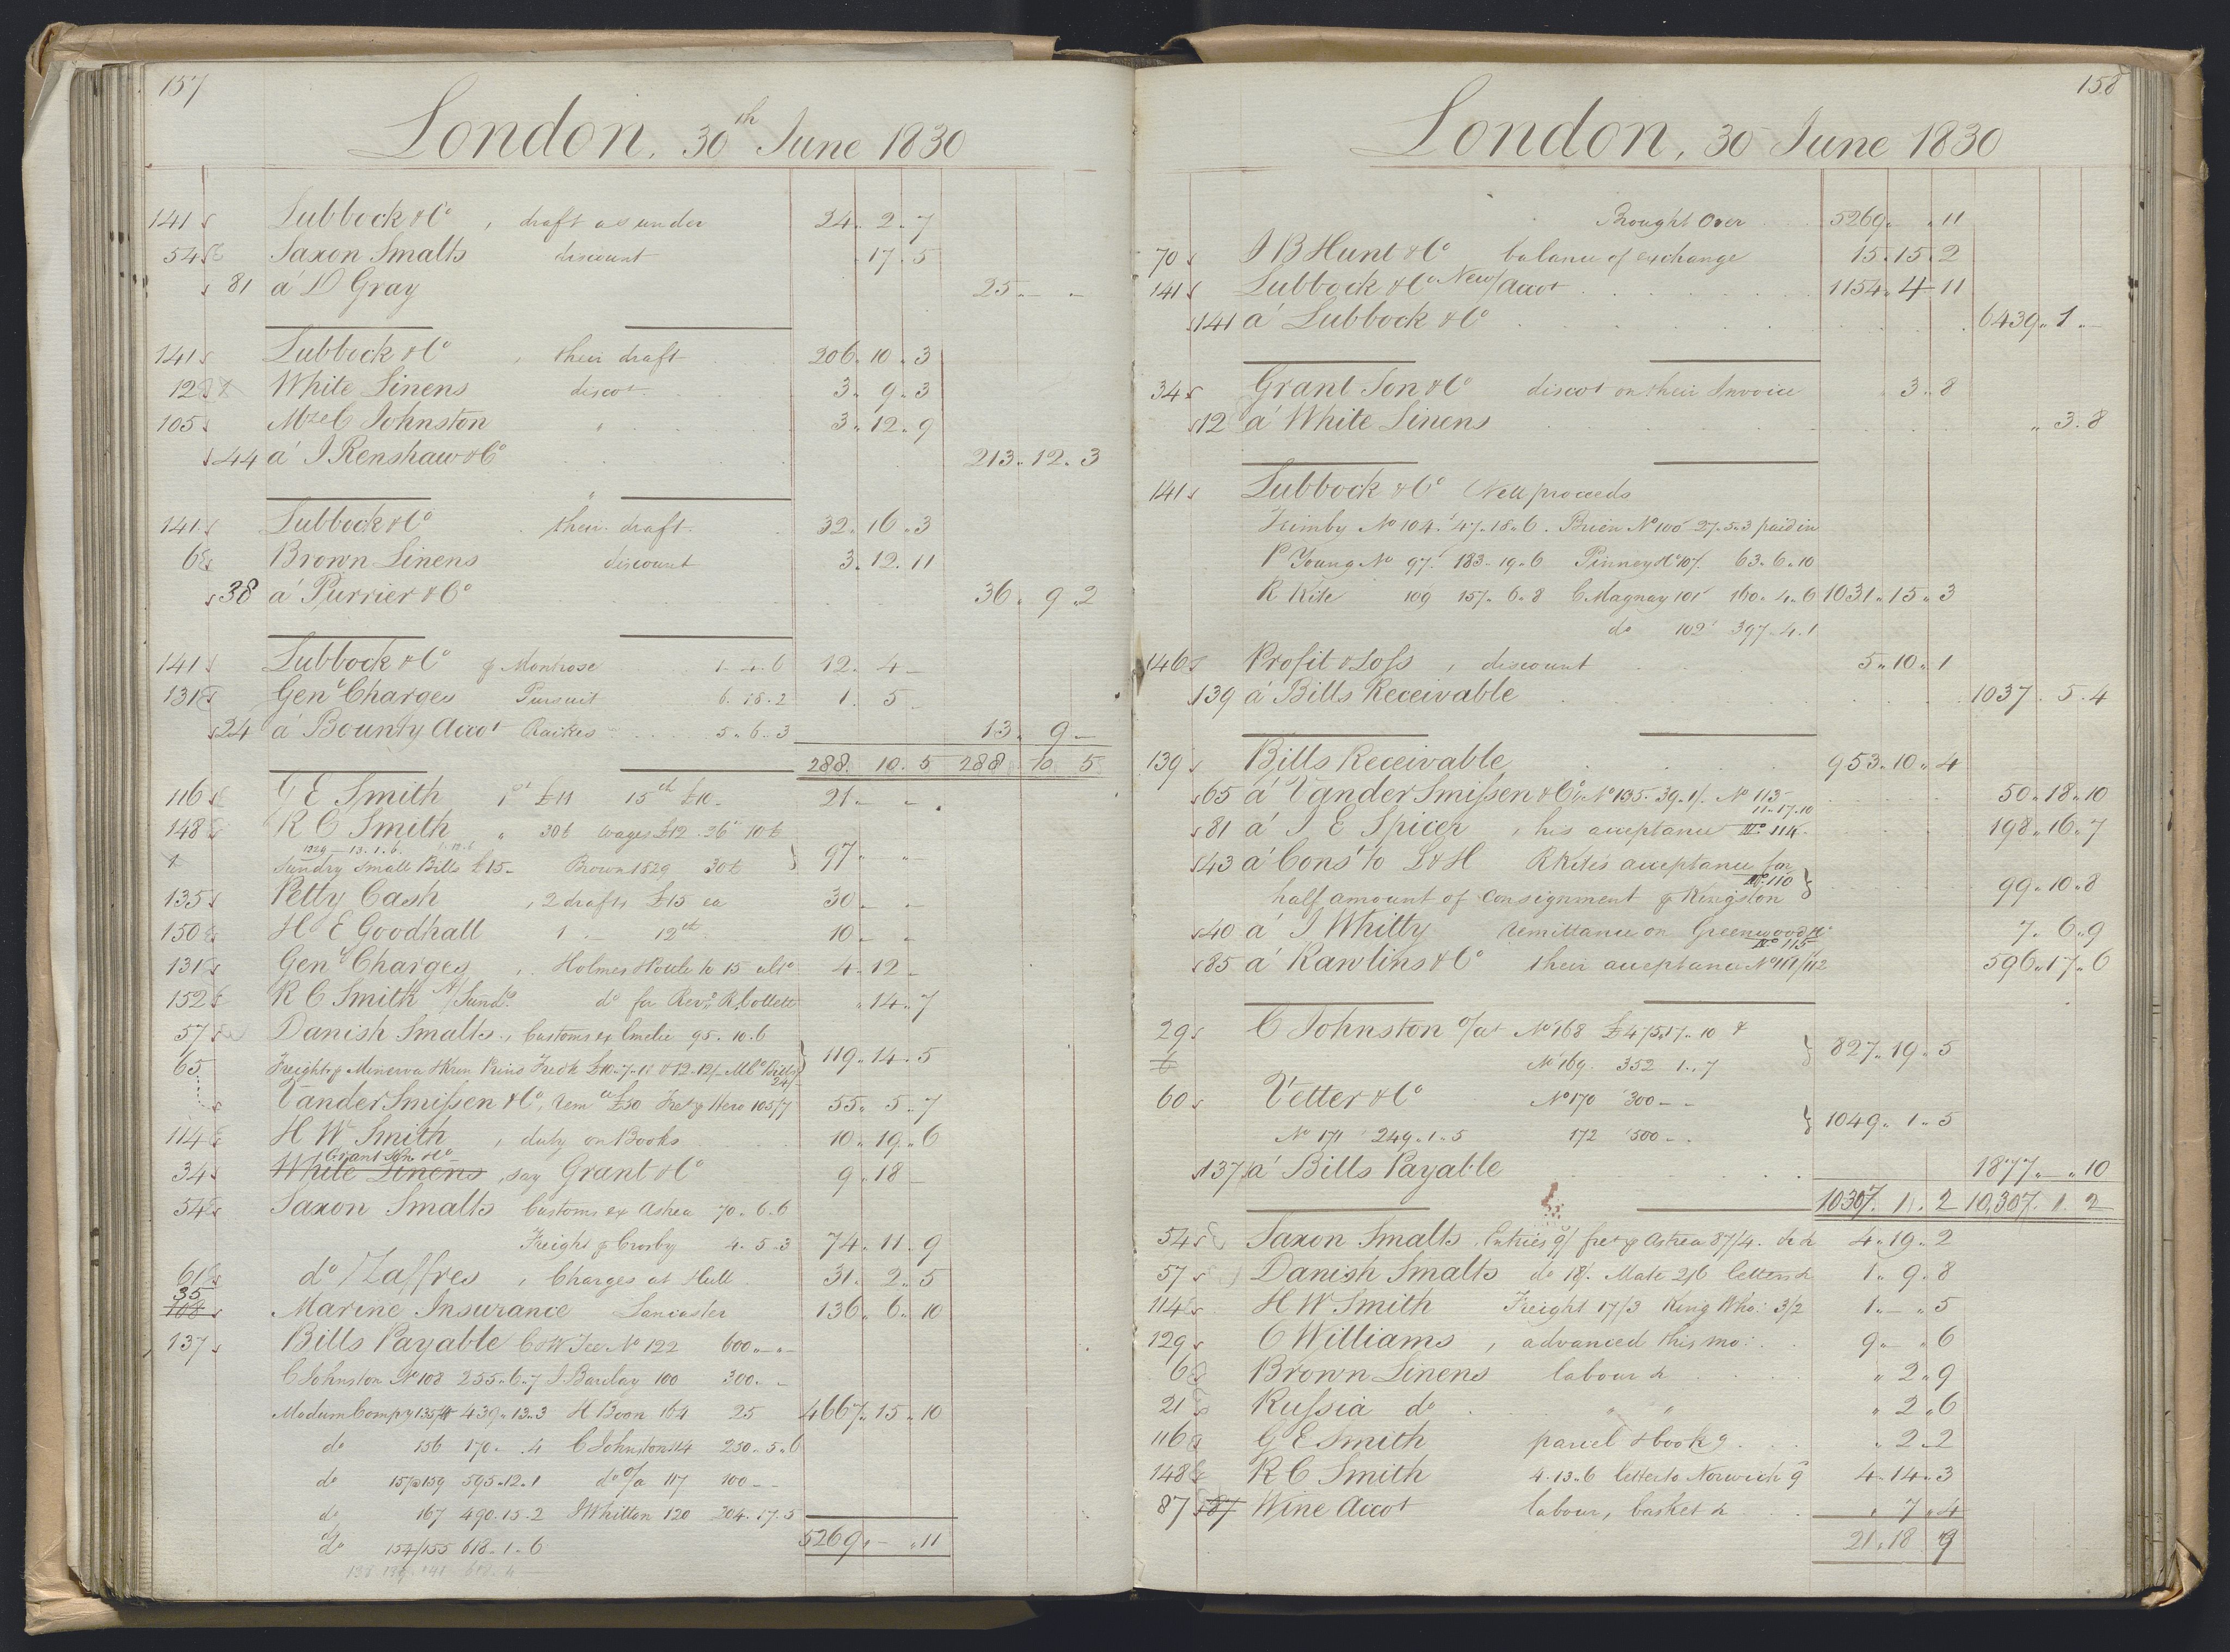 157
London, 30th June 1830
141 Lubbock & Co , draft as under 24. 2. 7
54 Saxon Smalts discount . 17. 5
81 á D Gray 25 – –
141 Lubbock & Co , their draft 206. 10. 3
12 White Linens discot 3. 9. 3
105 Johnston " 3. 12. 9
44 á J Renshaw & Co 213. 12. 3
141 Lubbock & Co their draft 32. 16. 3
6 Brown Linens discount 3. 12. 11
38 á Purrier & Co 36. 9. 2
141 Lubbock & Co p Montrose 1. 4. 6 12. 4 –
131 Genl Charges Pursuit 6. 18. 2 1. 5 –
24 á Bounty Accot Raikes 5. 6. 3 13. 9 –
288. 10. 5 288 10. 5
116 G E Smith 1st £11 15th £10 – 21 – –
148 R C Smith " 30th wages £12. 10
1829 – 13. 1. 6.
Sundry small Bills £15 – Brown 1829 97 " "
135 Petty Cash , 2 drafts £15 ea 30 – –
150 H E Goodhall 1 – 12th 10 – "
131 Genl Charges , Holmes Hoole to 15 ulto 4. 12 –
152 R C Smith A/Sunds do for Revd R Collett " 14. 7
57 Danish Smalts , Customs ex Emelie 95. 10. 6
65 Freight p Minerva & Kron Prins Fredk £10. 7. 10 & 12. 12/– 119. 14. 5
VanderSmissen & Co, Rem ce £50 Fret p Hero 105/7 55. 5. 7
114 H W Smith , duty on Books 10. 19. 6
Grant Son & Co
34 White Linens , say Grant & Co 9. 18 –
54 Saxon Smalts Customs ex Astrea 70. 6. 6
Freight p Crosby 4. 5. 3 74. 11. 9
61 do / Zaffres , Charges at Hull 31. 2. 5
35
108 Marine Insurance Lancaster 136. 6. 10
137 Bills Payable No 122 600 " – " –
C Johnston No 108 255. 6. 7 J. Barclay 100 300. –
Modum Compy 135/ 439. 13. 3 H Boon 164 25 4667. 15. 10
do 156 170. – . 4 C Johnston 114 250. 5. 6
do 157 @ 159 595. 12. 1 do o/a 117 100 – –
do 167 490. 15. 2 J Whitton 120 204. 17. 5
do 154/155 618. 1. 6 5269. – . 11
158
London, 30 June 1830
Brought Over 5269. – " 11
70 J B Hunt & Co balance of exchange 15. 15. 2
141 Lubbock & Co New/Accot 1154. 4. 11
141 á Lubbock & Co 6439. 1. –
34 Grant Son & Co discot on their Invoice . 3. 8
12 á White Linens " 3. 8
141 Lubbock & Co Nett proceeds
No 104. 47. 18. 6. No 105 27. 5. 3 paid in
P Young No 97. 183. 19. 6 Pinney & Co 107. 63. 6. 10
R Kite 109 157. 6. 8 C Magnay 101 160. 4. 6 1031. 15. 3
do 102 397. 4. 1
146 Profit & Loss , discount 5. 10. 1
139 á Bills Receivable 1037. 5. 4
139 Bills Receivable 953. 10. 4
65 á VanderSmissen & Co No 135. 39. 1/. No 113 11. 17. 10 50. 18. 10
81 á J E Spicer , his acceptance No 114 198. 16. 7
43 á Const to L & H R Kites acceptance for No 110
half amount of consignment p Kingston 99. 10. 8
40 á J Whitty remittance on Greenwood & Co No 115 7. 6. 9
85 á Rawlins & Co their acceptance No 111/112 596. 17. 6
29 C Johnston o/a No 168 £475. 17. 10 &
6 No 169. 352. 1. 7 827. 19. 5
60 Vetter & Co No 170 300 – –
No 171 249. 1. 5 172 500 – . 1049. 1. 5
137 á Bills Payable 1877. – . 10
10307. 1. 2 10,307. 1. 2
54 Saxon Smalts Entries 9/ fret p Astrea 87/4. &c 4. 19. 2
57 Danish Smalts do 18/. Mate 2/6 letters & 1. 9. 8
114 H W Smith Freight 17/3 King Who: 3/2 1. – . 5
129 C Williams , advanced this mo: 9. – " 6
6 Brown Linens labour & " 2. 9
21 Russia do " " " 2. 6
116 G E Smith parcel & books . 2. 2
148 R C Smith 4. 13. 6 letter to Norwich 9 4. 14. 3
87 87 Wine Accot labour, basket & . 7. 4
21. 18. 9